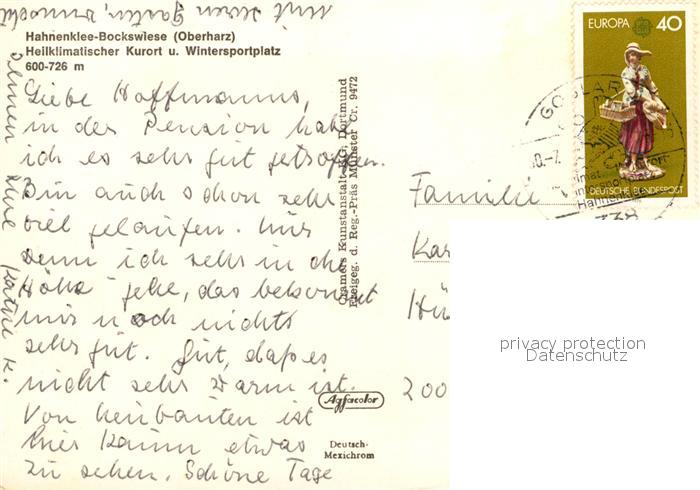 Hahnenklee-Bockswiese (Oberharz)
Heilklimatischer Kurort u. Wintersportplatz
600-726 m
Liebe Hoffmanns,
in der Pension habe
ich es sehr gut getroffen.
Bin auch schon sehr
viel gelaufen. Nur
wenn ich sehr in die
Höhe gehe, das bekommt
mir noch nicht
sehr gut. Gut, daß es
nicht sehr warm ist.
Von Neubauten ist
hier kaum etwas
zu sehen. Schöne Tage
mit Garten, wünscht
Ihnen Ihre K.
Cramers Kunstanstalt KG, Dortmund
Freigeg. d. Reg.-Präs Münster Cr. 9472
Agfacolor
Deutsch-
Mexichrom
EUROPA 40
DEUTSCHE BUNDESPOST
GOSLAR
338
Familie
Kar
Hü
200
privacy protection
Datenschutz